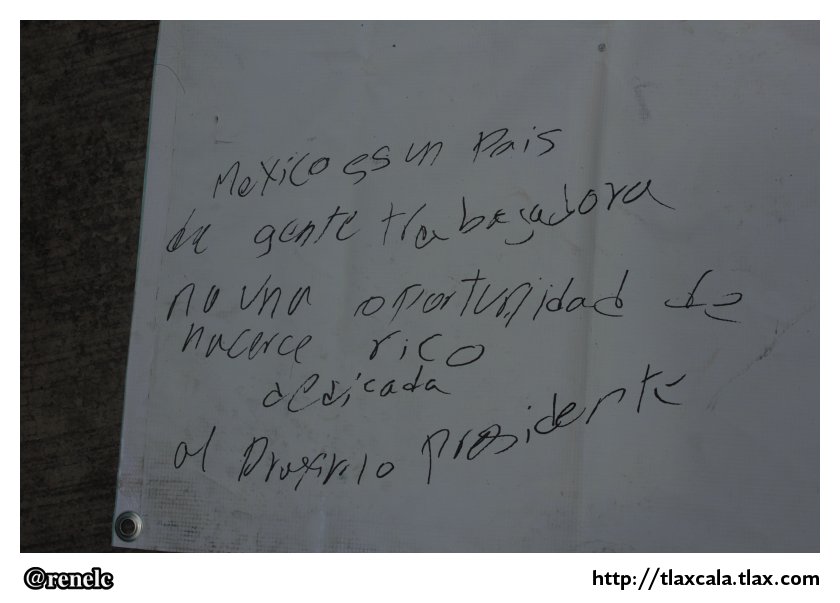 Mexico es un Pais
de gente trabajadora
no una oportunidad de
hacerce rico
dedicada
al Proximo presidente
@renelc
http://tlaxcala.tlax.com